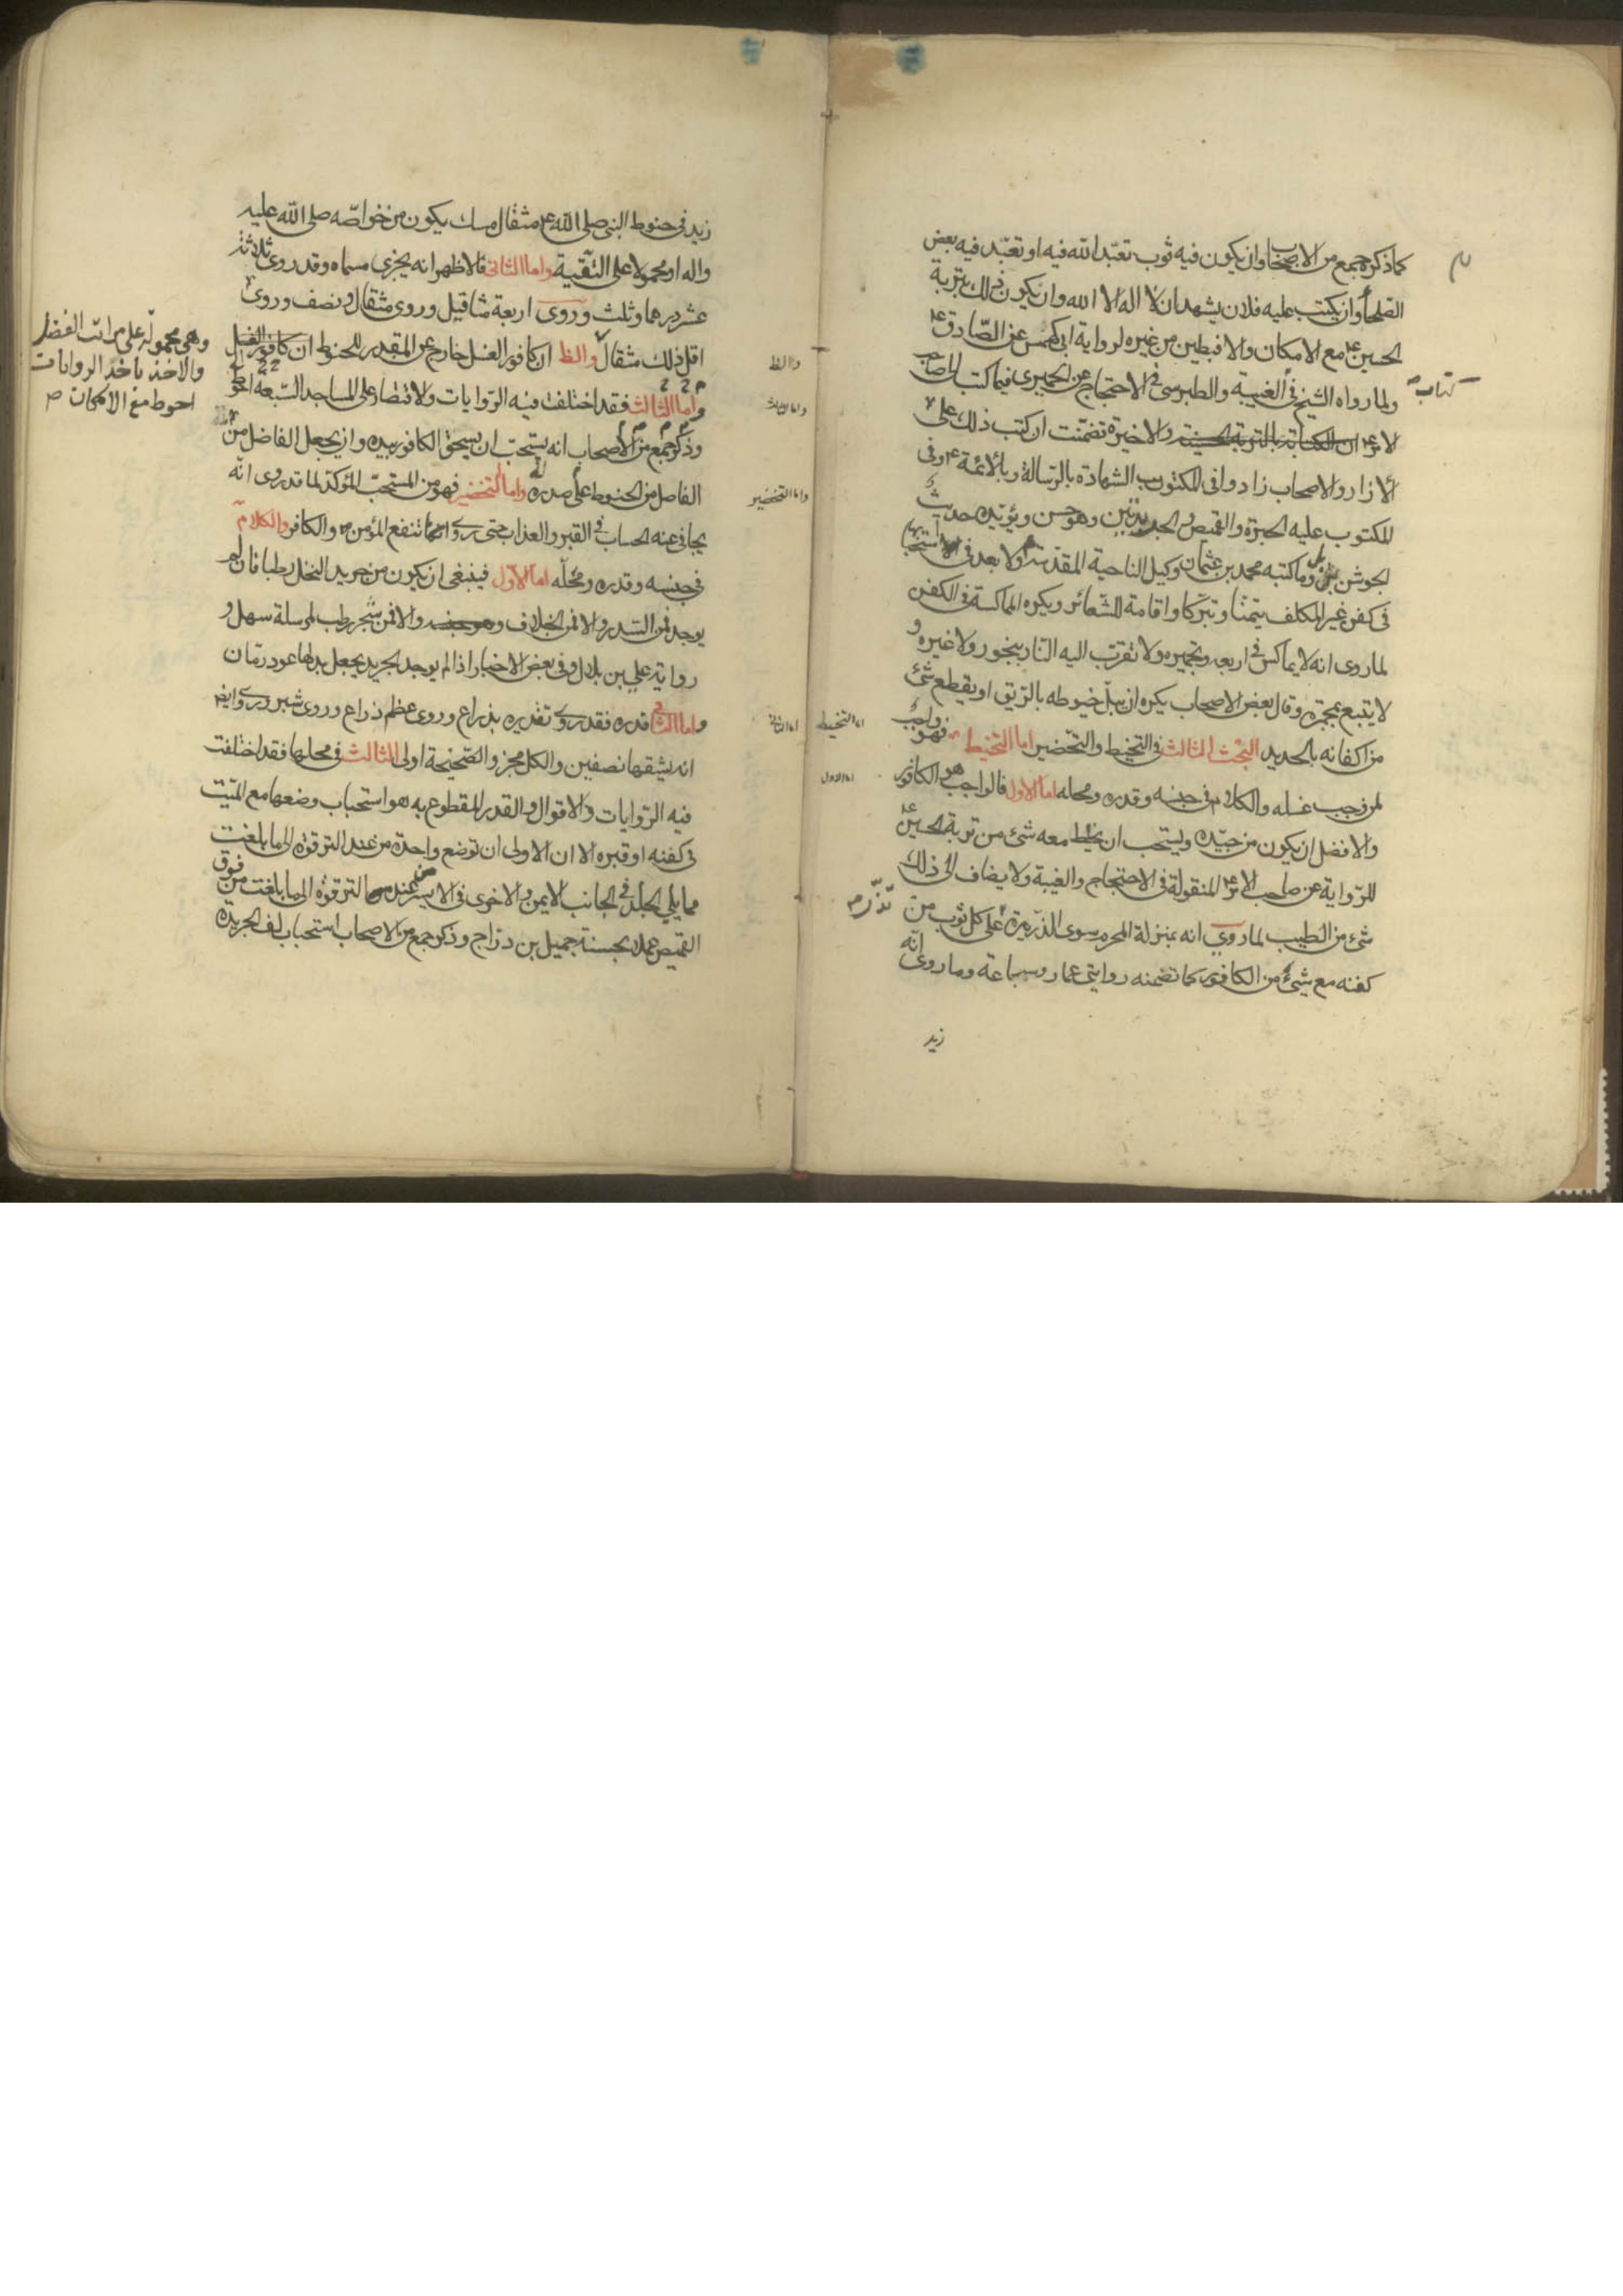 كما ذكره جمع من الاصحاب وان يكون فيه ثوب تعبّد الله فيه او تعبّد فيه بعض
الصلحاء وان يكتب عليه فلان يشهد ان لا اله الا الله وان يكون ذلك بتربة
الحسين ع مع الامكان والا فبطين من غيره لرواية ابى كهمس عن الصّادق ع
ولما رواه الشيخ فى الغيبة والطبرسى فى الاحتجاج عن الحميرى فيما كتب الى صاحب
كتاب
الامر ع ان الكتابة بالتربة الحسينية والاخيرة تضمّنت ان كتب ذلك على
الازار والاصحاب زادوا فى المكتوب الشهادة بالرّسالة وبالائمة ع وفى
المكتوب عليه الحبرة والقميص والجريدتين وهو حسن ويؤيّده حديث
الجوشن وما كتبه محمد بن عثمان وكيل الناحية المقدسة ولا بعد فى استحبابها
فى كفن غير المكلف تيمّنا وتبرّكا واقامة للشّعائر ويكره المماكسة فى الكفن
لما روى انه لا يماكس فى اربعه وتجميره ولا تقرّب اليه النار ببخور ولا غيره و
لا يتبع بمجمرة وقال بعض الاصحاب يكره ان يبلّ خيوطه بالريق او يقطع شئ
من اكفانه بالحديد البحث الثالث فى التحنيط والتخضير اما التحنيط فهو واجب
اما التحنيط
لمن وجب غسله والكلام فى جنسه وقدره ومحله اما الاول فالواجب هو الكافور
اما الاول
والافضل ان يكون من جيّده ويستحب ان يخلط معه شئ من تربة الحسين ع
للرّواية عن صاحب الامر ع المنقولة فى الاحتجاج والغيبة ولا يضاف الى ذلك
شئ من الطيب لما روي انه بمنزلة المحرم سوى الذّريرة على كل ثوب من
كفنه مع شئ من الكافور كما تضمنه روايتى عمار وسماعة وما روى انّه
زيد
زيد فى حنوط النبى صلى الله ع مثقال مسك يكون من خواصّه صلى الله عليه
واله او محمولا على التّقية واما الثانى فالاظهر انه يجزى مسماه وقد روى ثلاثة
عشر درهما وثلث وروى اربعة مثاقيل وروى مثقال ونصف وروى
وهى محمولة على مراتب الفضل
والاخذ باخذ الروايات
احوط مع الامكان ص
اقل ذلك مثقال والظ ان كافور الغسل خارج عن المقدر للحنوط ان كافور الغسل
والظ
واما الثالث فقد اختلفت فيه الرّوايات والاقتصار على المساجد السّبعة احوط
واما الثالث
وذكر جمع من الاصحاب انه يستحبّ ان يسحق الكافور بيده وان يجعل الفاضل من
الفاضل من الحنوط على صدره واما التخضير فهو من المستحبّ المؤكّد لما قد روى انّه
واما التخضير
يجافى عنه الحساب فى القبر والعذاب حتى روى انهما تنفع المؤمن والكافر والكلام
فى جنسه وقدره ومحلّه اما الاوّل فينبغى ان يكون من جريد النخل رطبا فان لم
يوجد فمن السّدر والا فمن الخلاف وهو والا فمن شجر رطب لمرسلة سهل و
رواية على بن بلال وفى بعض الاخبار اذا لم يوجد الجريد يجعل بدلها عود رمّان
واما الثانى قدره فقد روى تقديره بذراع وروى عظم ذراع وروى شبر وروى ايض
اما الثانى
انه يشقها نصفين والكل مجز والصّحيحة اولى الثالث فى محلها فقد اختلفت
فيه الرّوايات والاقوال والقدر المقطوع به هو استحباب وضعها مع الميّت
فى كفنه او قبره الا ان الاولى ان توضع واحدة من عند الترقوة الى ما بلغت
مما يلي الجلد فى الجانب الايمن والاخرى فى الايسر من عند الترقوة الى ما بلغت من فوق
القميص عملا بحسنة جميل بن درّاج وذكر جمع من الاصحاب استحباب لف الجريدة